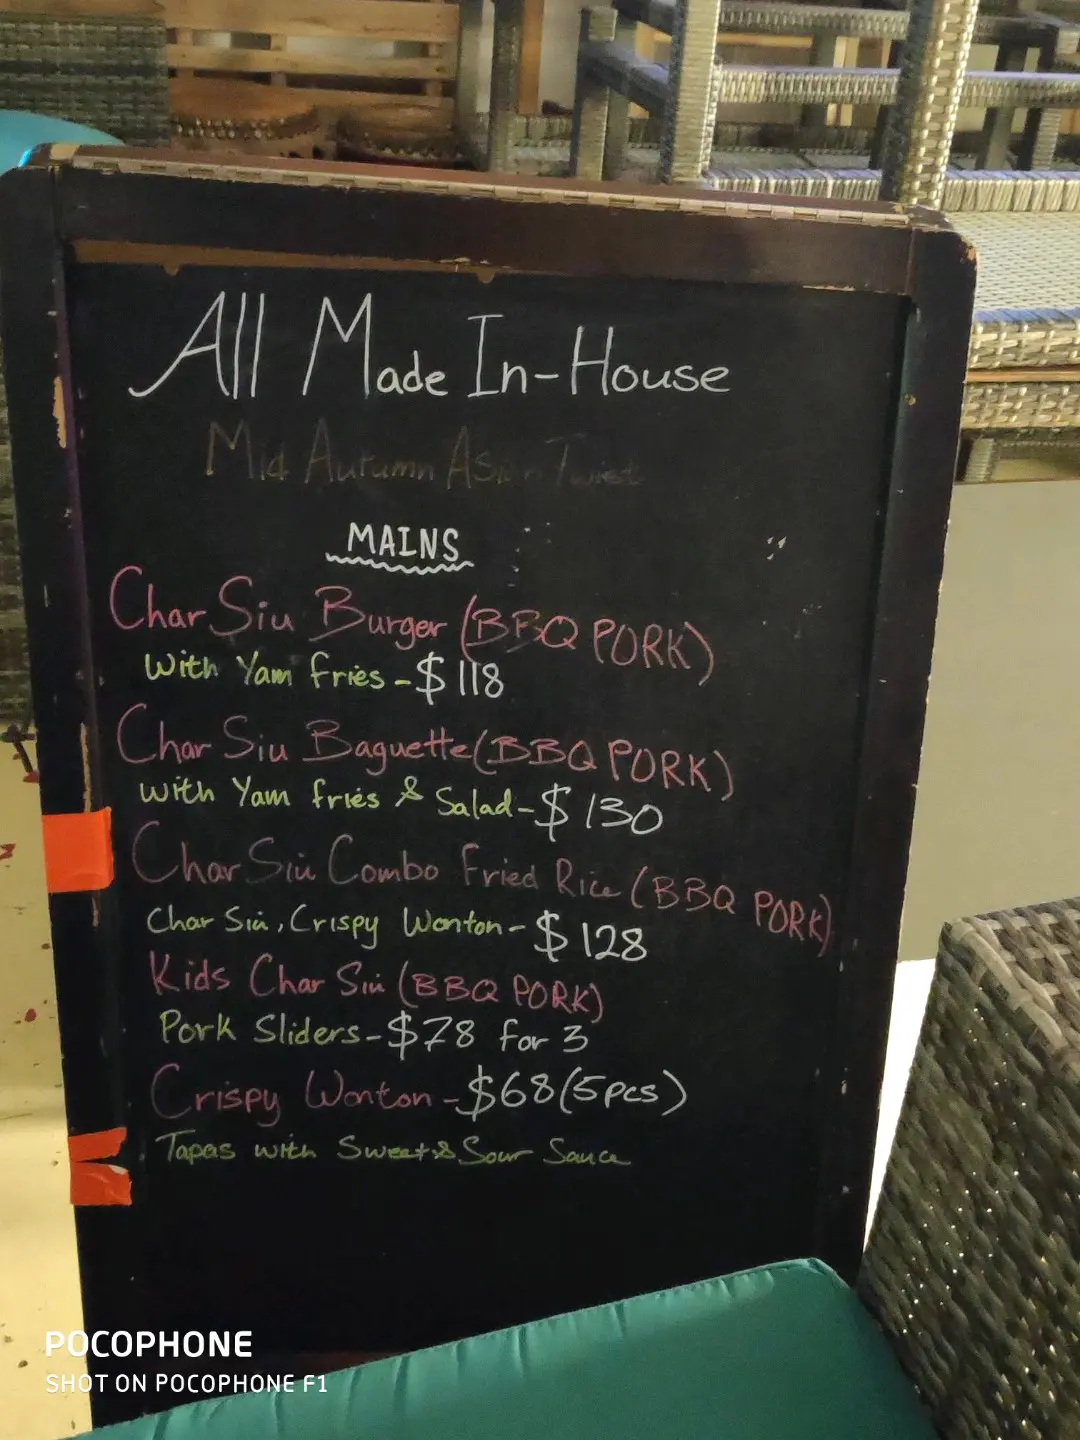 All Made In-House
Mid Autumn Asian Twist
MAINS
Char Siu Burger (BBQ PORK)
with Yam fries - $118
Char Siu Baguette (BBQ PORK)
with Yam fries & Salad - $130
Char Siu Combo Fried Rice (BBQ PORK)
Char Siu, Crispy Wonton - $128
Kids Char Siu (BBQ PORK)
Pork Sliders - $78 for 3
Crispy Wonton - $68 (5pcs)
Tapas with Sweet & Sour Sauce
POCOPHONE
SHOT ON POCOPHONE F1